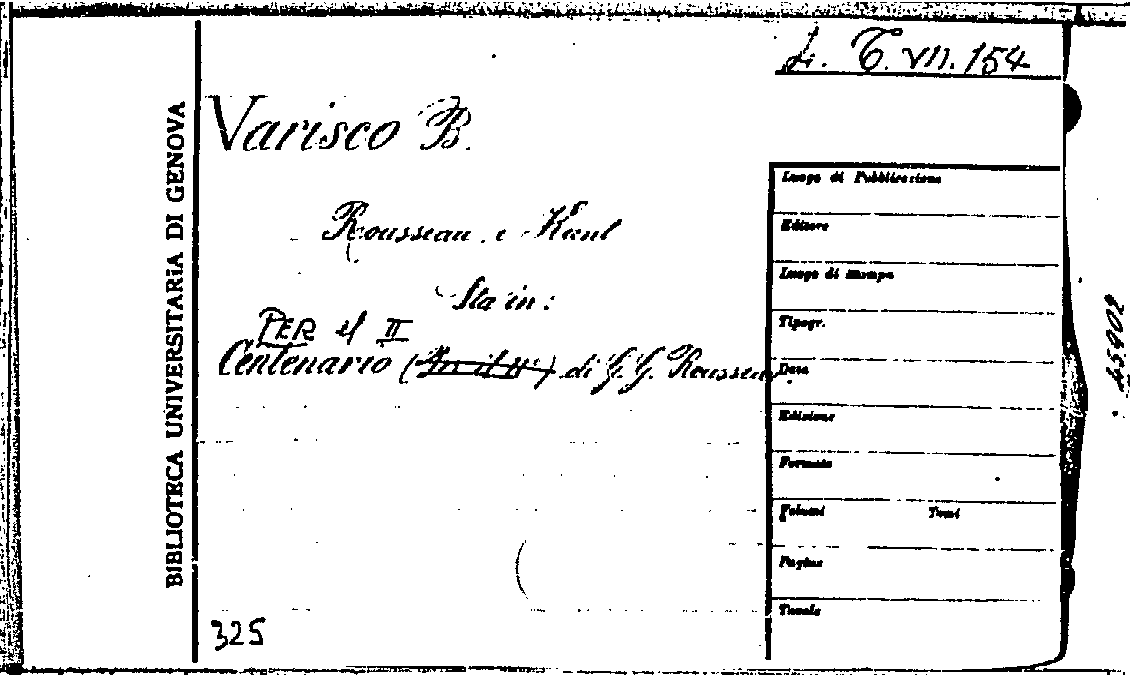 4. T. VII. 154
BIBLIOTECA UNIVERSITARIA DI GENOVA
Varisco B.
Rousseau e Kant
Sta in:
PER il II
Centenario (Per il II°) di G. G. Rousseau.
Luogo di Pubblicazione
Editore
Luogo di stampa
Tipogr.
Data
Edizione
Formato
Volumi Tomi
Pagine
Tavole
325
45902